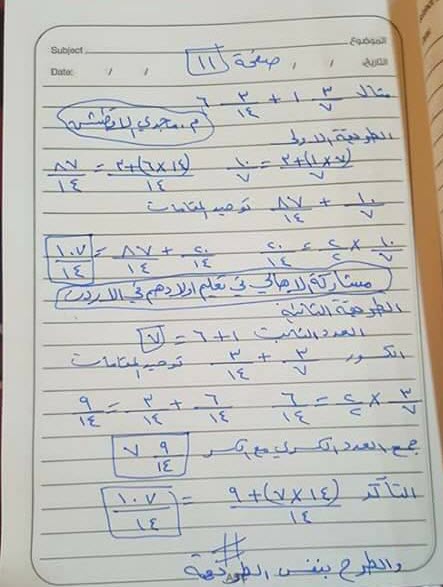 Subject
الموضوع
Date: / /
التاريخ / /
صفحة ١١
مثال ١ ٣/٧ + ٦ ٣/١٤
م. مجدي الاقطش
الطريقة الاولى
(٧×١)+٣/٧ = ١٠/٧ (١٤×٦)+٣/١٤ = ٨٧/١٤
١٠/٧ + ٨٧/١٤ توحيد المقامات
١٠/٧ × ٢/٢ = ٢٠/١٤ ٢٠/١٤ + ٨٧/١٤ = ١٠٧/١٤
مشاركة الاهالي في تعليم اولادهم في الاردن
الطريقة الثانية
العدد الثابت ١+٦ = ٧
الكسور ٣/٧ + ٣/١٤ توحيد المقامات
٣/٧ × ٢/٢ = ٦/١٤ ٦/١٤ + ٣/١٤ = ٩/١٤
جمع العدد الكسري مع الكسر ٧ ٩/١٤
التأكد (١٤×٧)+٩/١٤ = ١٠٧/١٤
#
والطرح بنفس الطريقة